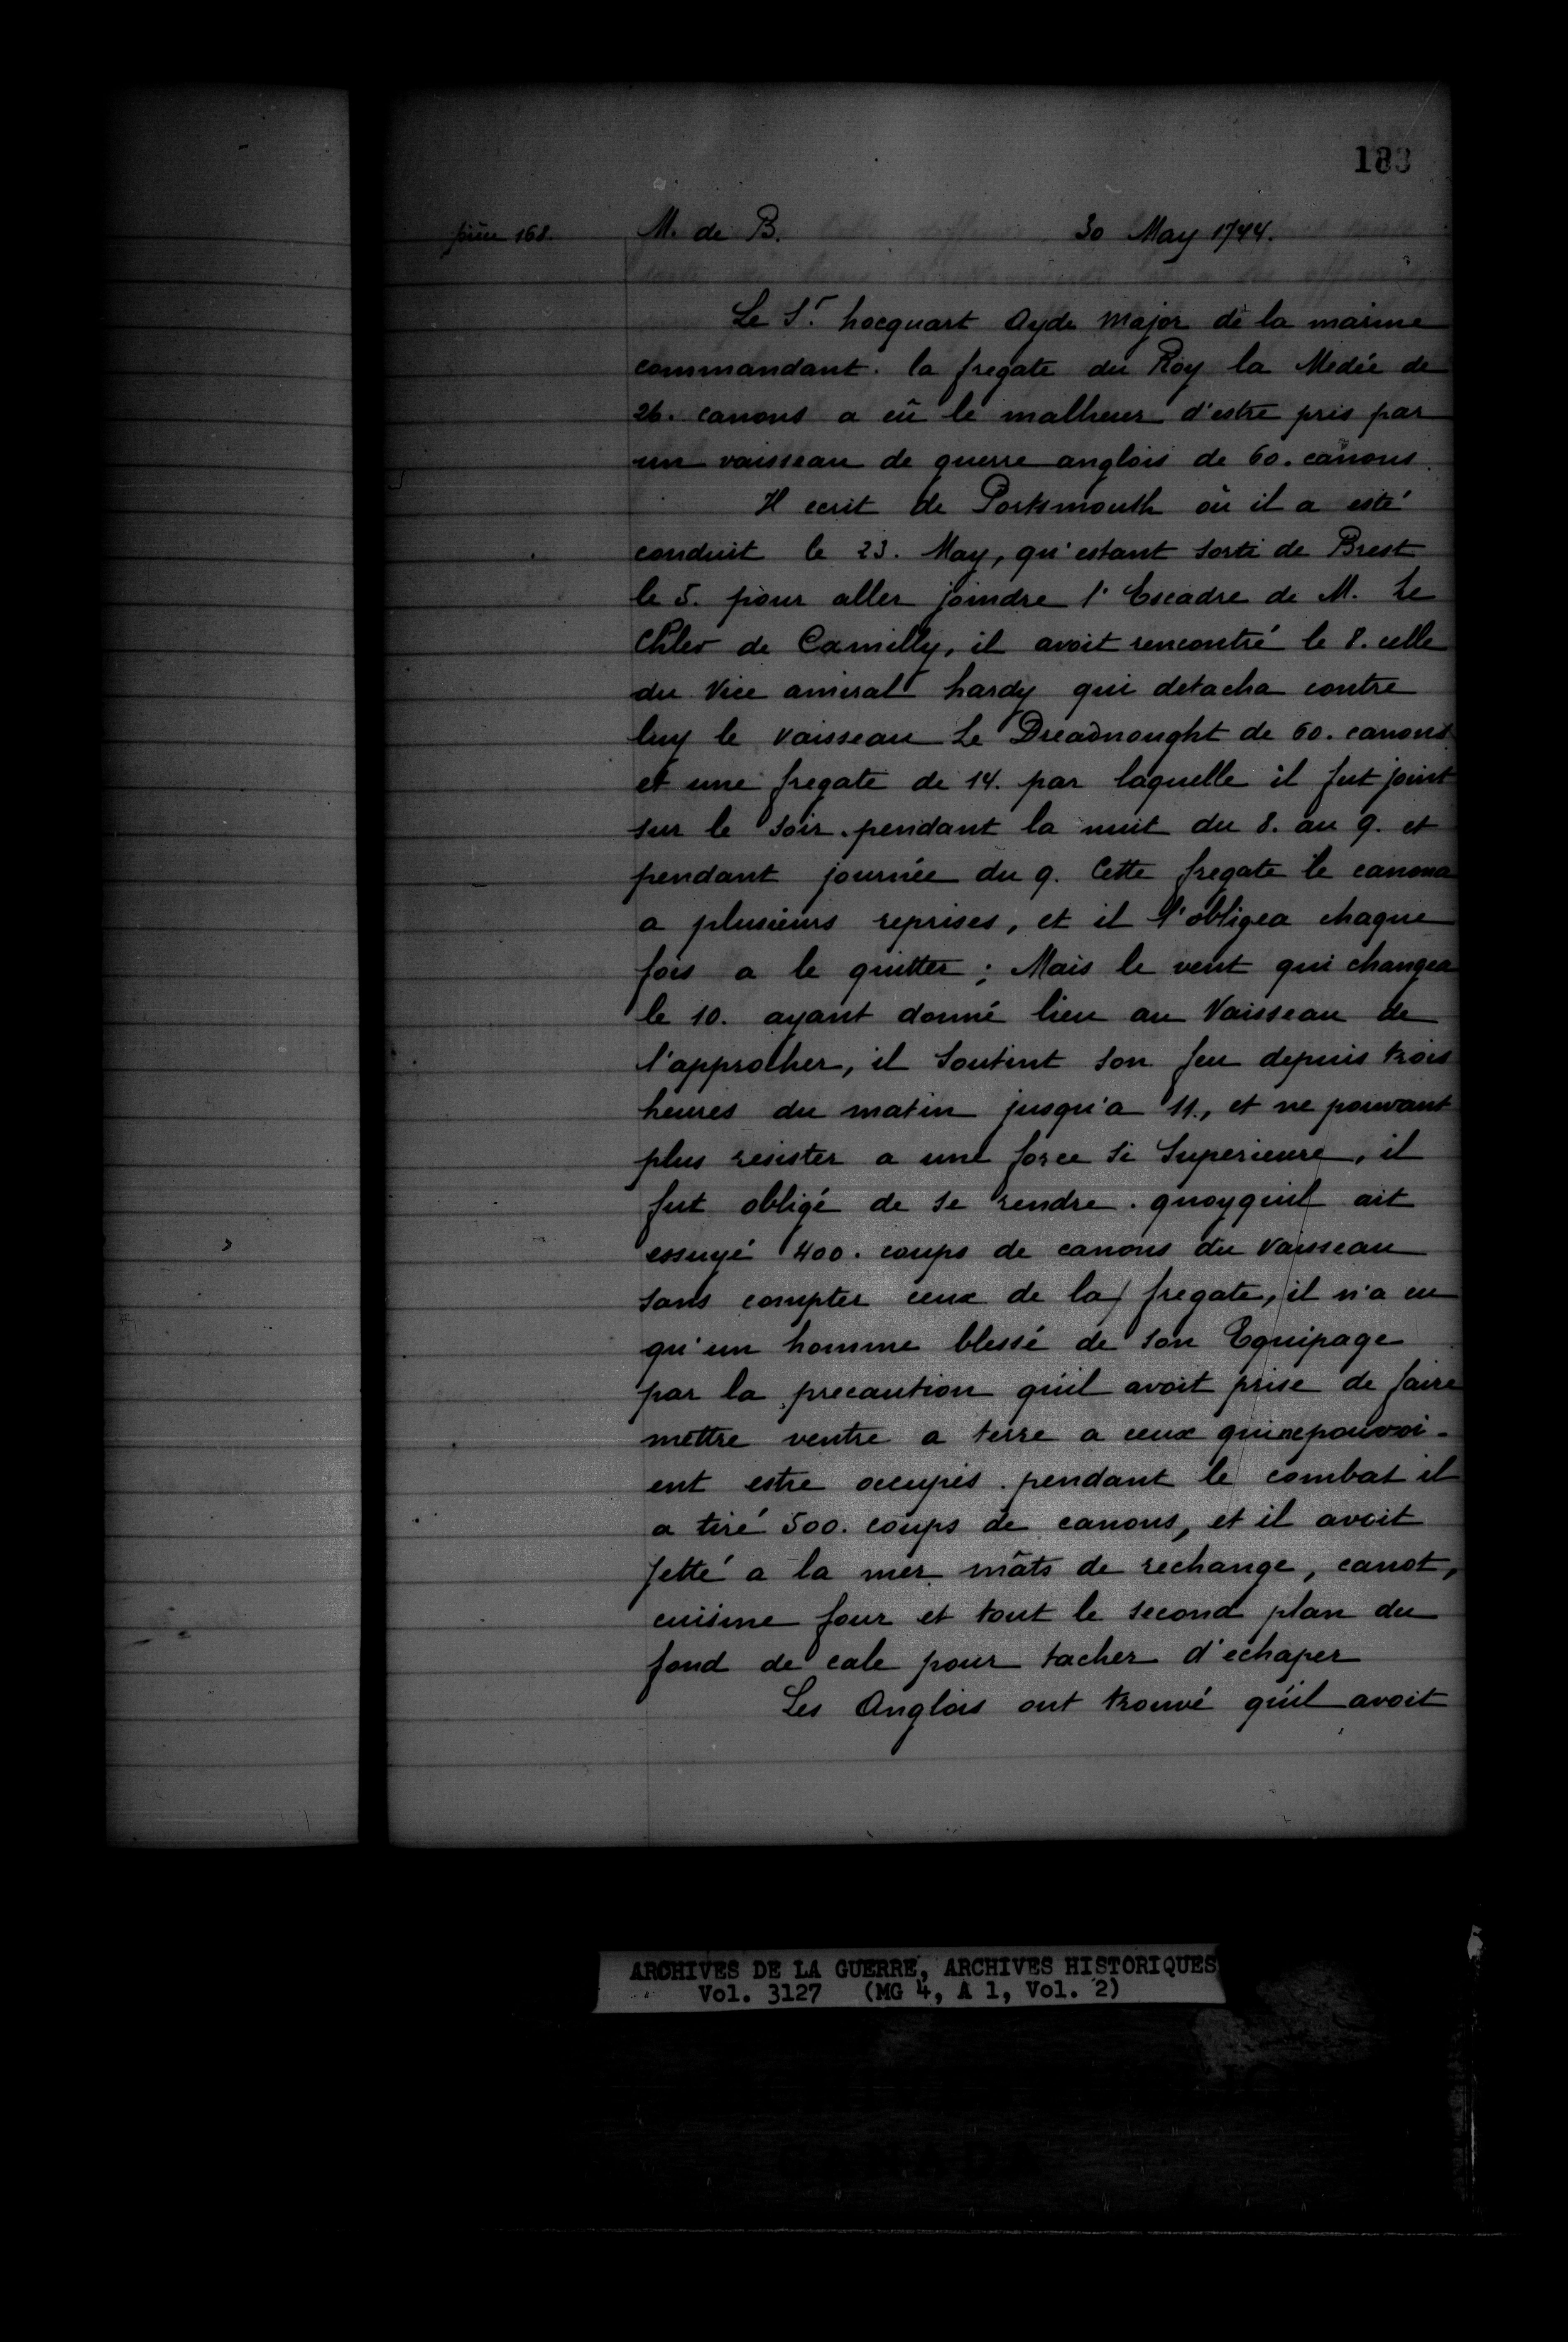 183
pièce 168.
M. de B. 30 May 1744.
Le S.r hocquart Ayde Major de la marine
commandant. la fregate du Roy la Medée de
26. canons a eû le malheur d'estre pris par
un vaisseau de guerre anglois de 60. canons.
Il ecrit de Portsmouth où il a esté
conduit le 23. May, qu'estant sorti de Brest
le 5. pour aller joindre l'Escadre de M. Le
Chler de Camilly, il avoit rencontré le 8. celle
du Vice amiral hardy qui detacha contre
luy le vaisseau Le Dreadnought de 60. canons
et une fregate de 14. par laquelle il fut joint
sur le soir. pendant la nuit du 8. au 9. et
pendant journée du 9. Cette fregate le canona
a plusieurs reprises, et il l'obligea chaque
fois a le quitter; Mais le vent qui changea
le 10. ayant donné lieu au Vaisseau de
l'approcher, il soutint son feu depuis trois
heures du matin jusqu'a 11., et ne pouvant
plus resister a une force si Superieure, il
fut obligé de se rendre. quoyquil ait
essuyé 400. coups de canons du vaisseau
sans compter ceux de la fregate, il n'a eu
qu'un homme blessé de son Equipage
par la precaution qu'il avoit prise de faire
mettre ventre a terre a ceux qui ne pouvoi-
ent estre occupés. pendant le combat il
a tiré 500. coups de canons, et il avoit
jetté a la mer mâts de rechange, canot,
cuisine four et tout le second plan du
fond de cale pour tacher d'echaper
Les Anglois ont trouvé qu'il avoit
ARCHIVES DE LA GUERRE, ARCHIVES HISTORIQUES
Vol. 3127 (MG 4, A 1, Vol. 2)